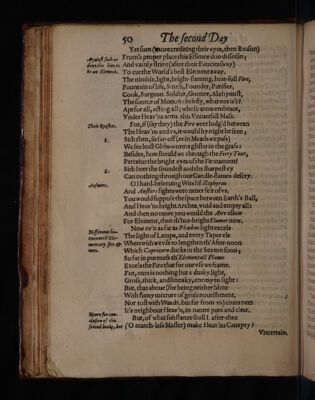 50 The second Day
Yet som (more crediting their eyes, then Reason)
From's proper place this Essence doo disseisin;
And vainly strive (after their Fancies sway)
To cut the World's best Element away,
The nimble, light, bright-flaming, heat-full Fire,
Fountain of life, Smith, Founder, Purifier,
Cook, Surgeon, Soldier, Gunner, Alchymist,
The source of Motion: briefly, what not is't?
Apt for all, acting all; whose arms embrace,
Under Heav'ns arms, this Universall Mass.
Their Reasons.
For, if (say they) the Fire were lodg'd between
The Heav'ns and us, it would by night be seen;
1.
Sith then, so far-off (as in Meads we pass)
We see least Glow-worms glister in the grass:
Besides, how should we through the Fiery Tent,
Perceive the bright eyes of the Firmament?
2.
Sith heer the soundest and the sharpest ey
Can nothing through our Candle-flames descry.
Answers.
O! hard-beleeving Wits! if Zephyrus
And Austers sighes were never felt of us,
You would suppose the space between Earth's Ball,
And Heav'ns bright Arches, void and empty all:
And then no more you would the Aire allow
For Element, then th'hot-bright Flamer now.
Now ev'n as far as Phœbus light excels
The light of Lamps, and every Taper els
Wherewith we use to lengthen th'After-noon
Which Capricorn ducks in the Sea too soon;
So far in pureness th' Elementall Flame
Excels the Fire that for our use we frame.
For, ours is nothing but a dusky light,
Gross, thick, and smoaky, enemy to sight:
But, that above (for being neither blent
With fumy mixture of gross nourishment,
Nor tost with Winds, but far from us) coms neer
It's neighbour Heav'n, in nature pure and cleer.
But, of what substance shall I, after-thee
(O match-less Master) make Heav'ns Canapey?
Vncertain,